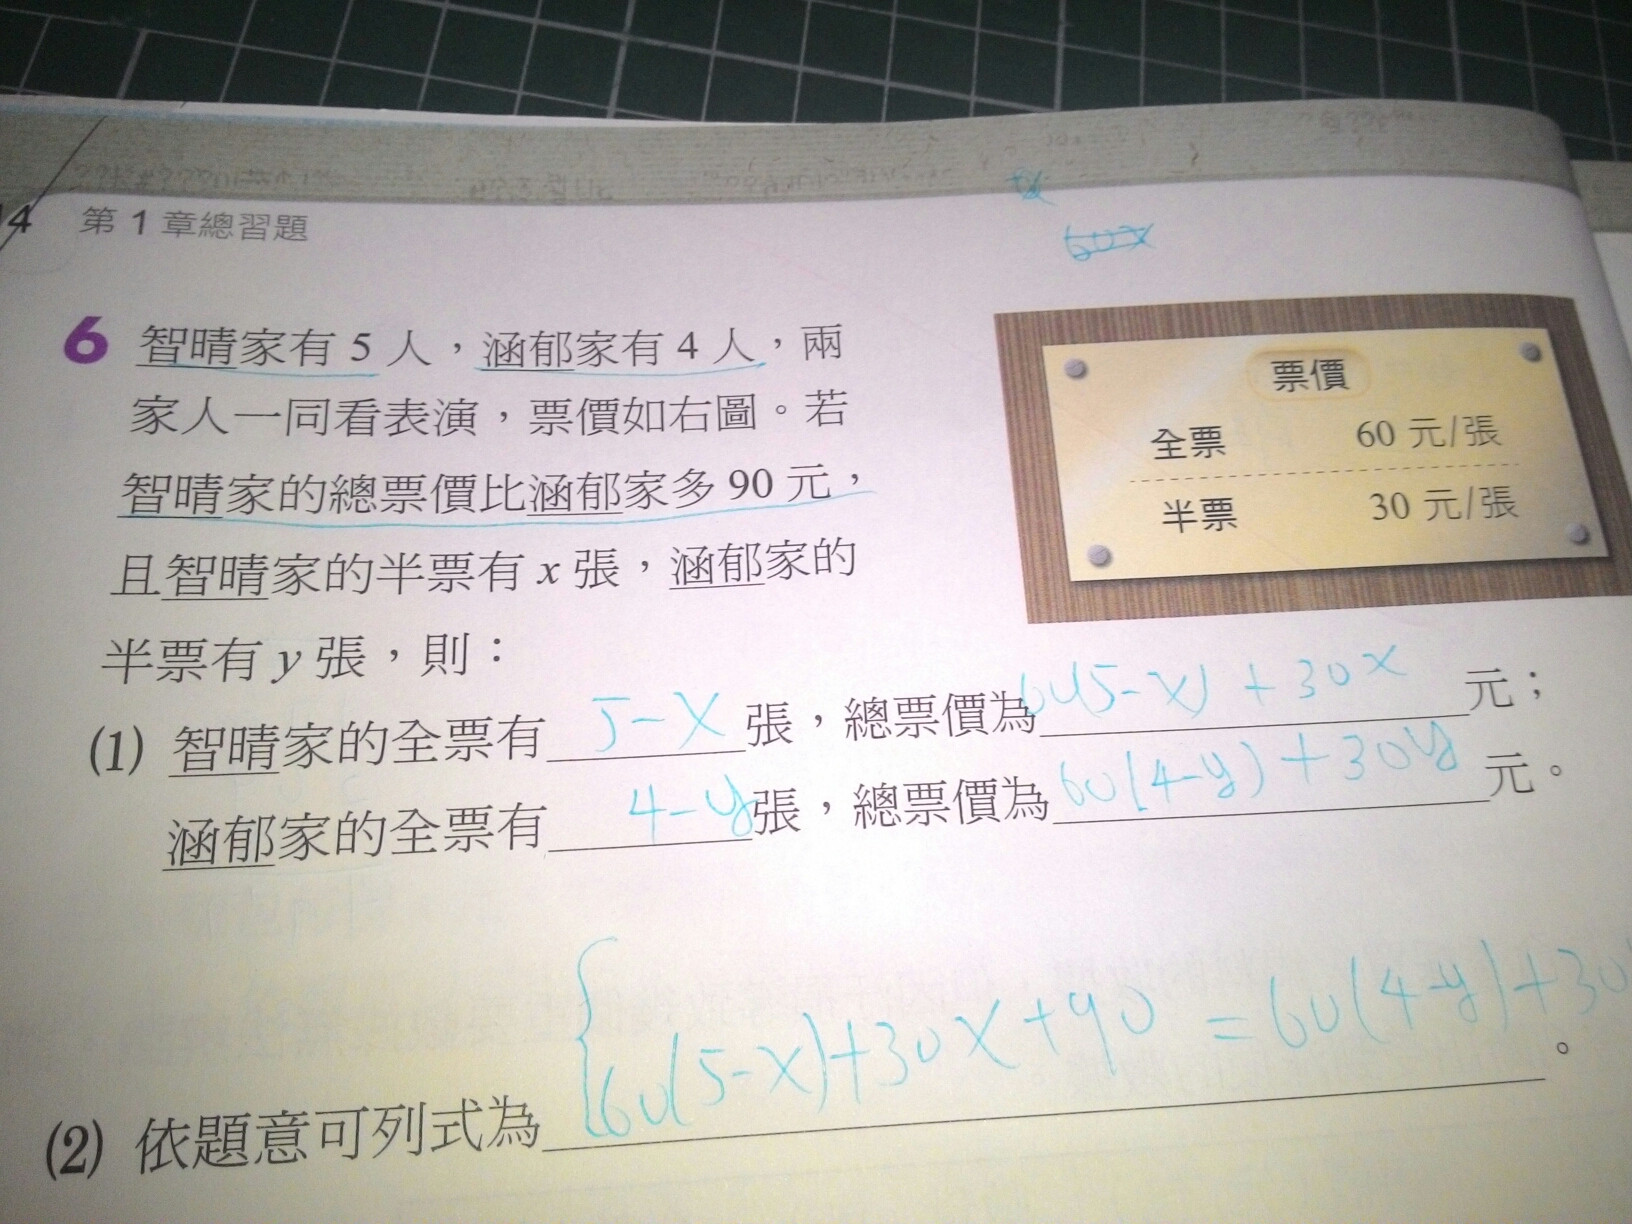 14 第 1 章總習題
60x
6 智晴家有 5 人，涵郁家有 4 人，兩
家人一同看表演，票價如右圖。若
智晴家的總票價比涵郁家多 90 元，
且智晴家的半票有 x 張，涵郁家的
半票有 y 張，則：
票價
全票 60 元/張
半票 30 元/張
(1) 智晴家的全票有 5-x 張，總票價為 60(5-x)+30x 元；
涵郁家的全票有 4-y 張，總票價為 60(4-y)+30y 元。
(2) 依題意可列式為 { 60(5-x)+30x+90=60(4-y)+30 。